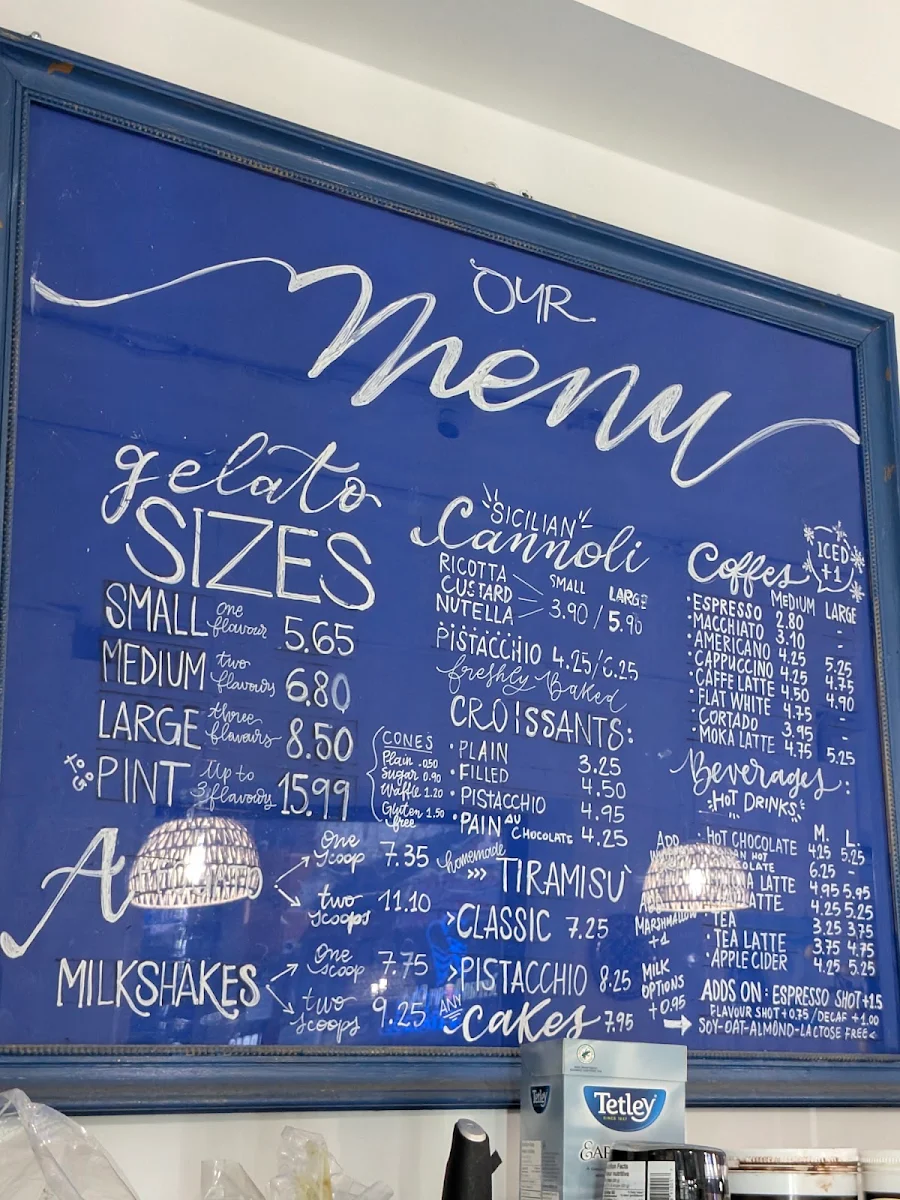 OUR
menu
gelato
SIZES
SMALL one flavour 5.65
MEDIUM two flavours 6.80
LARGE three flavours 8.50
to go PINT Up to 3 flavours 15.99
CONES
Plain .050
Sugar 0.90
Waffle 1.20
Gluten free 1.50
one scoop 7.35
two scoops 11.10
MILKSHAKES
one scoop 7.75
two scoops 9.25
SICILIAN
Cannoli
SMALL LARGE
RICOTTA
CUSTARD 3.90 / 5.90
NUTELLA
PISTACCHIO 4.25/6.25
freshly Baked
CROISSANTS:
• PLAIN 3.25
• FILLED 4.50
• PISTACCHIO 4.95
• PAIN AU CHOCOLATE 4.25
homemade >>> TIRAMISU'
>CLASSIC 7.25
>PISTACCHIO 8.25
ANY Cakes 7.95
Coffes
ICED +1
MEDIUM LARGE
• ESPRESSO 2.80 -
• MACCHIATO 3.10 -
• AMERICANO 4.25 5.25
• CAPPUCCINO 4.25 4.75
• CAFFE LATTE 4.50 4.90
• FLAT WHITE 4.75 -
• CORTADO 3.95 -
• MOKA LATTE 4.75 5.25
Beverages:
HOT DRINKS
M. L.
• HOT CHOCOLATE 4.25 5.25
HOT
6.25 -
LATTE 4.95 5.95
4.25 5.25
• TEA 3.25 3.75
• TEA LATTE 3.75 4.75
• APPLE CIDER 4.25 5.25
ADD
MARSHMALLOW
+1
MILK
OPTIONS
+0.95
ADDS ON: ESPRESSO SHOT +1.5
FLAVOUR SHOT +0.75 / DECAF +1.00
SOY-OAT-ALMOND-LACTOSE FREE
Tetley
SINCE 1837